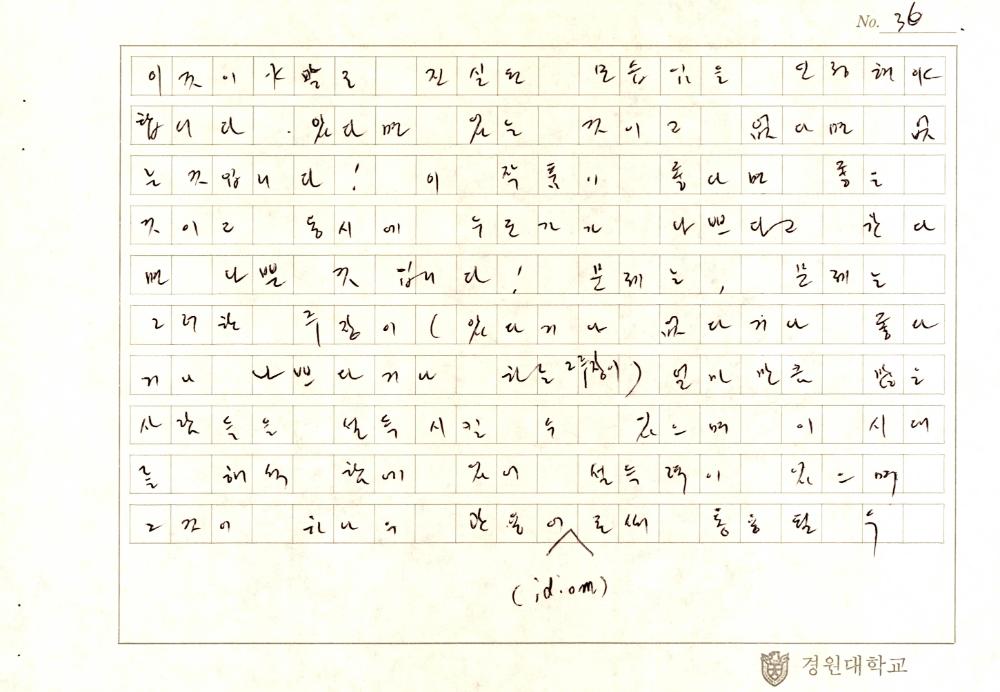 No. 36
이것이야 말로 진실된 모습임을 인정해야
합니다. 있다면 있는 것이고 없다면 없
는 것입니다! 이 작품이 좋다면 좋은
것이고 동시에 누군가가 나쁘다고 한다
면 나쁜 것 입니다! 문제는, 문제는
그러한 주장이 (있다거나 없다거나 좋다
거나 나쁘다거나 하는 그 주장이) 얼마 만큼 많은
사람들을 설득시킬 수 있으며 이 시대
를 해석 함에 있어 설득력이 있으며
그것이 하나의 관용어로써 통용될 수
(idiom)
경원대학교